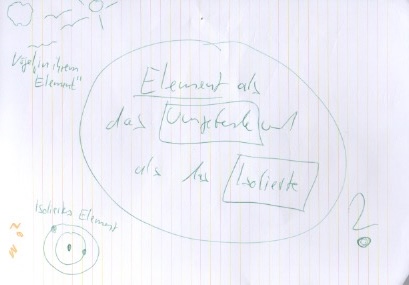 Vögel in ihrem
Element"
Element als
das Umgebende und
als das Isolierte
Isoliertes Element
?